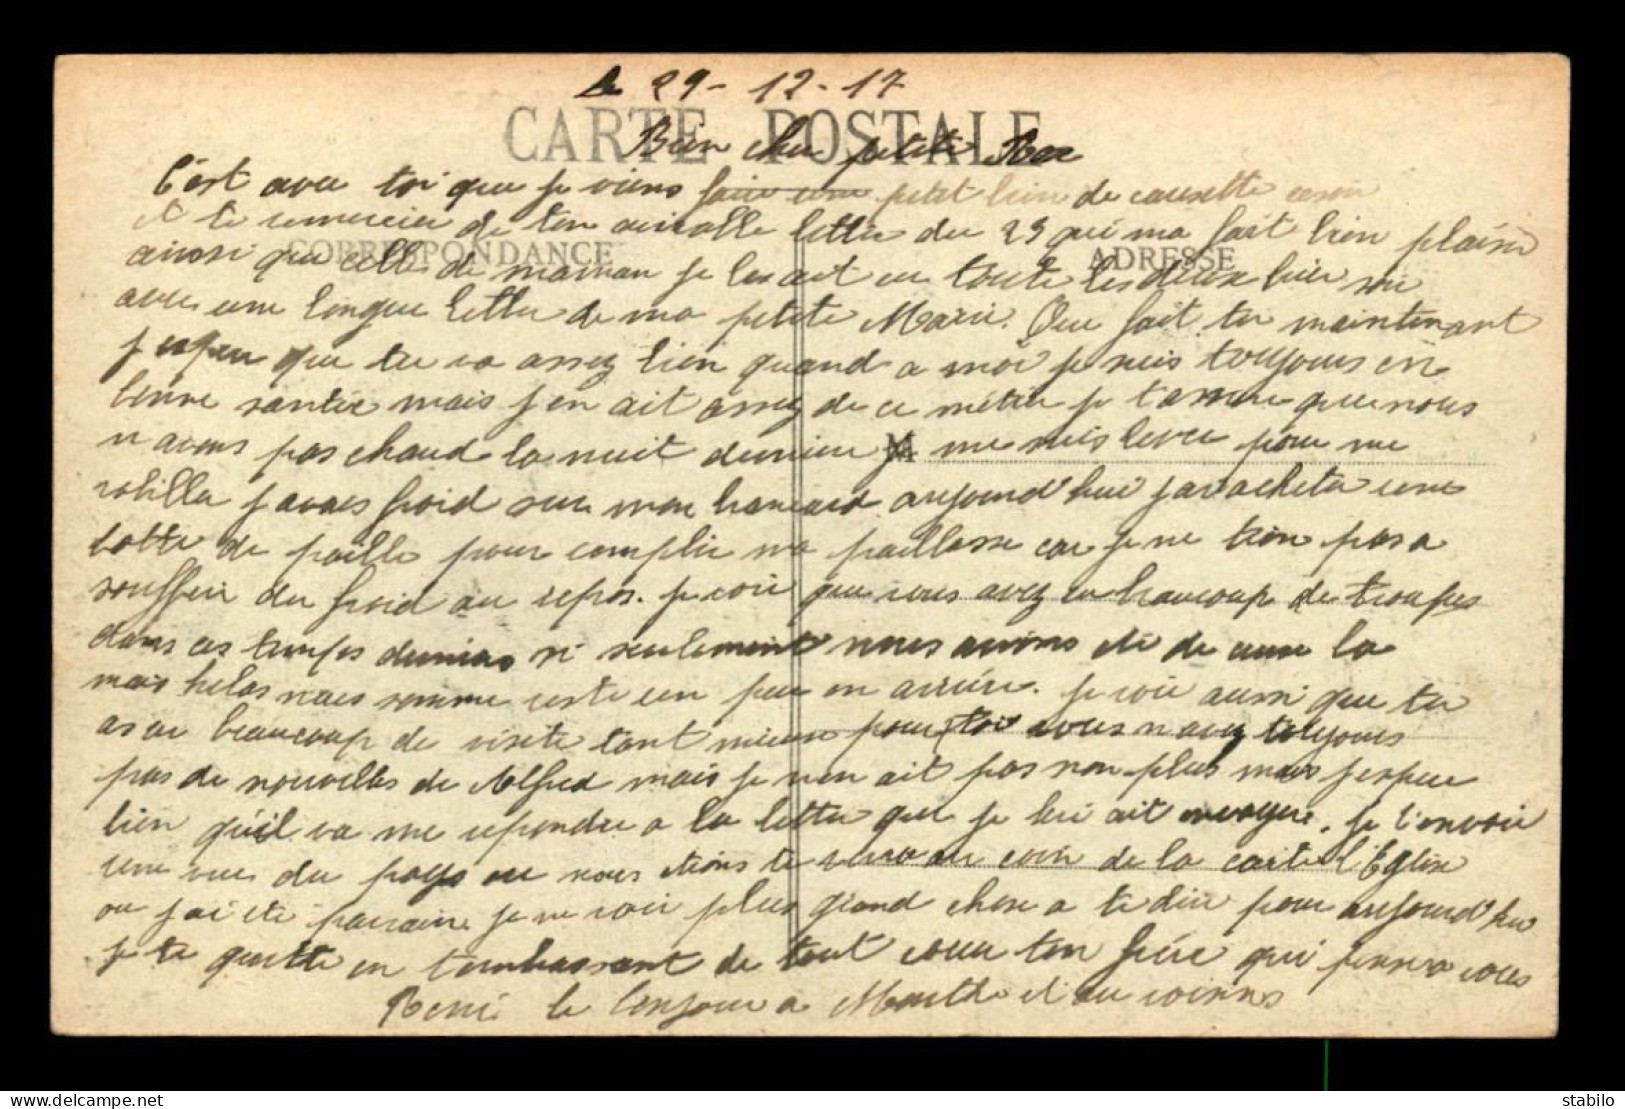 Le 29-12-17
CARTE POSTALE
Bien cher petite
C'est avec toi que je viens faire un petit brin de causette ce soir
et te remercier de ton aimable lettre du 23 qui ma fait bien plaisir
CORRESPONDANCE
ADRESSE
ainsi que celle de maman je les ait eu toute les deux hier soir
avec une longue lettre de ma petite Marie. Que fait tu maintenant
j'espere que tu va assez bien quand a moi je suis toujours en
bonne santée mais j'en ait assez de ce métier je t'assure que nous
n'avons pas chaud la nuit derniere je me suis lever pour me
rabiller j'avais froid sur mon brancard aujourd'hui j'ai acheter une
botte de paille pour remplir ma paillasse car je ne tien pas a
souffrir du froid au repos. je voie que vous avez eu beaucoup de troupes
dans ces temps derniers si seulement nous avions été de ceux la
mais helas nous somme reste un peu en arriére. je voie aussi que tu
as eu beaucoup de visite tant mieux pour toi vous n'avez toujours
pas de nouvelles de Alfred mais je n'en ait pas non plus mais j'espere
bien qu'il va me repondre a la lettre que je lui ait envoyere. je t'envoie
une vue du pays ou nous étions tu verra au coin de la carte l'Eglise
ou j'ai été parrain je ne voie plus grand chose a te dire pour aujourd'hui
je te quitte en t'embrassant de tout coeur ton frére qui pense a vous
René le bonjour a Marthe et au voisins
stabilo